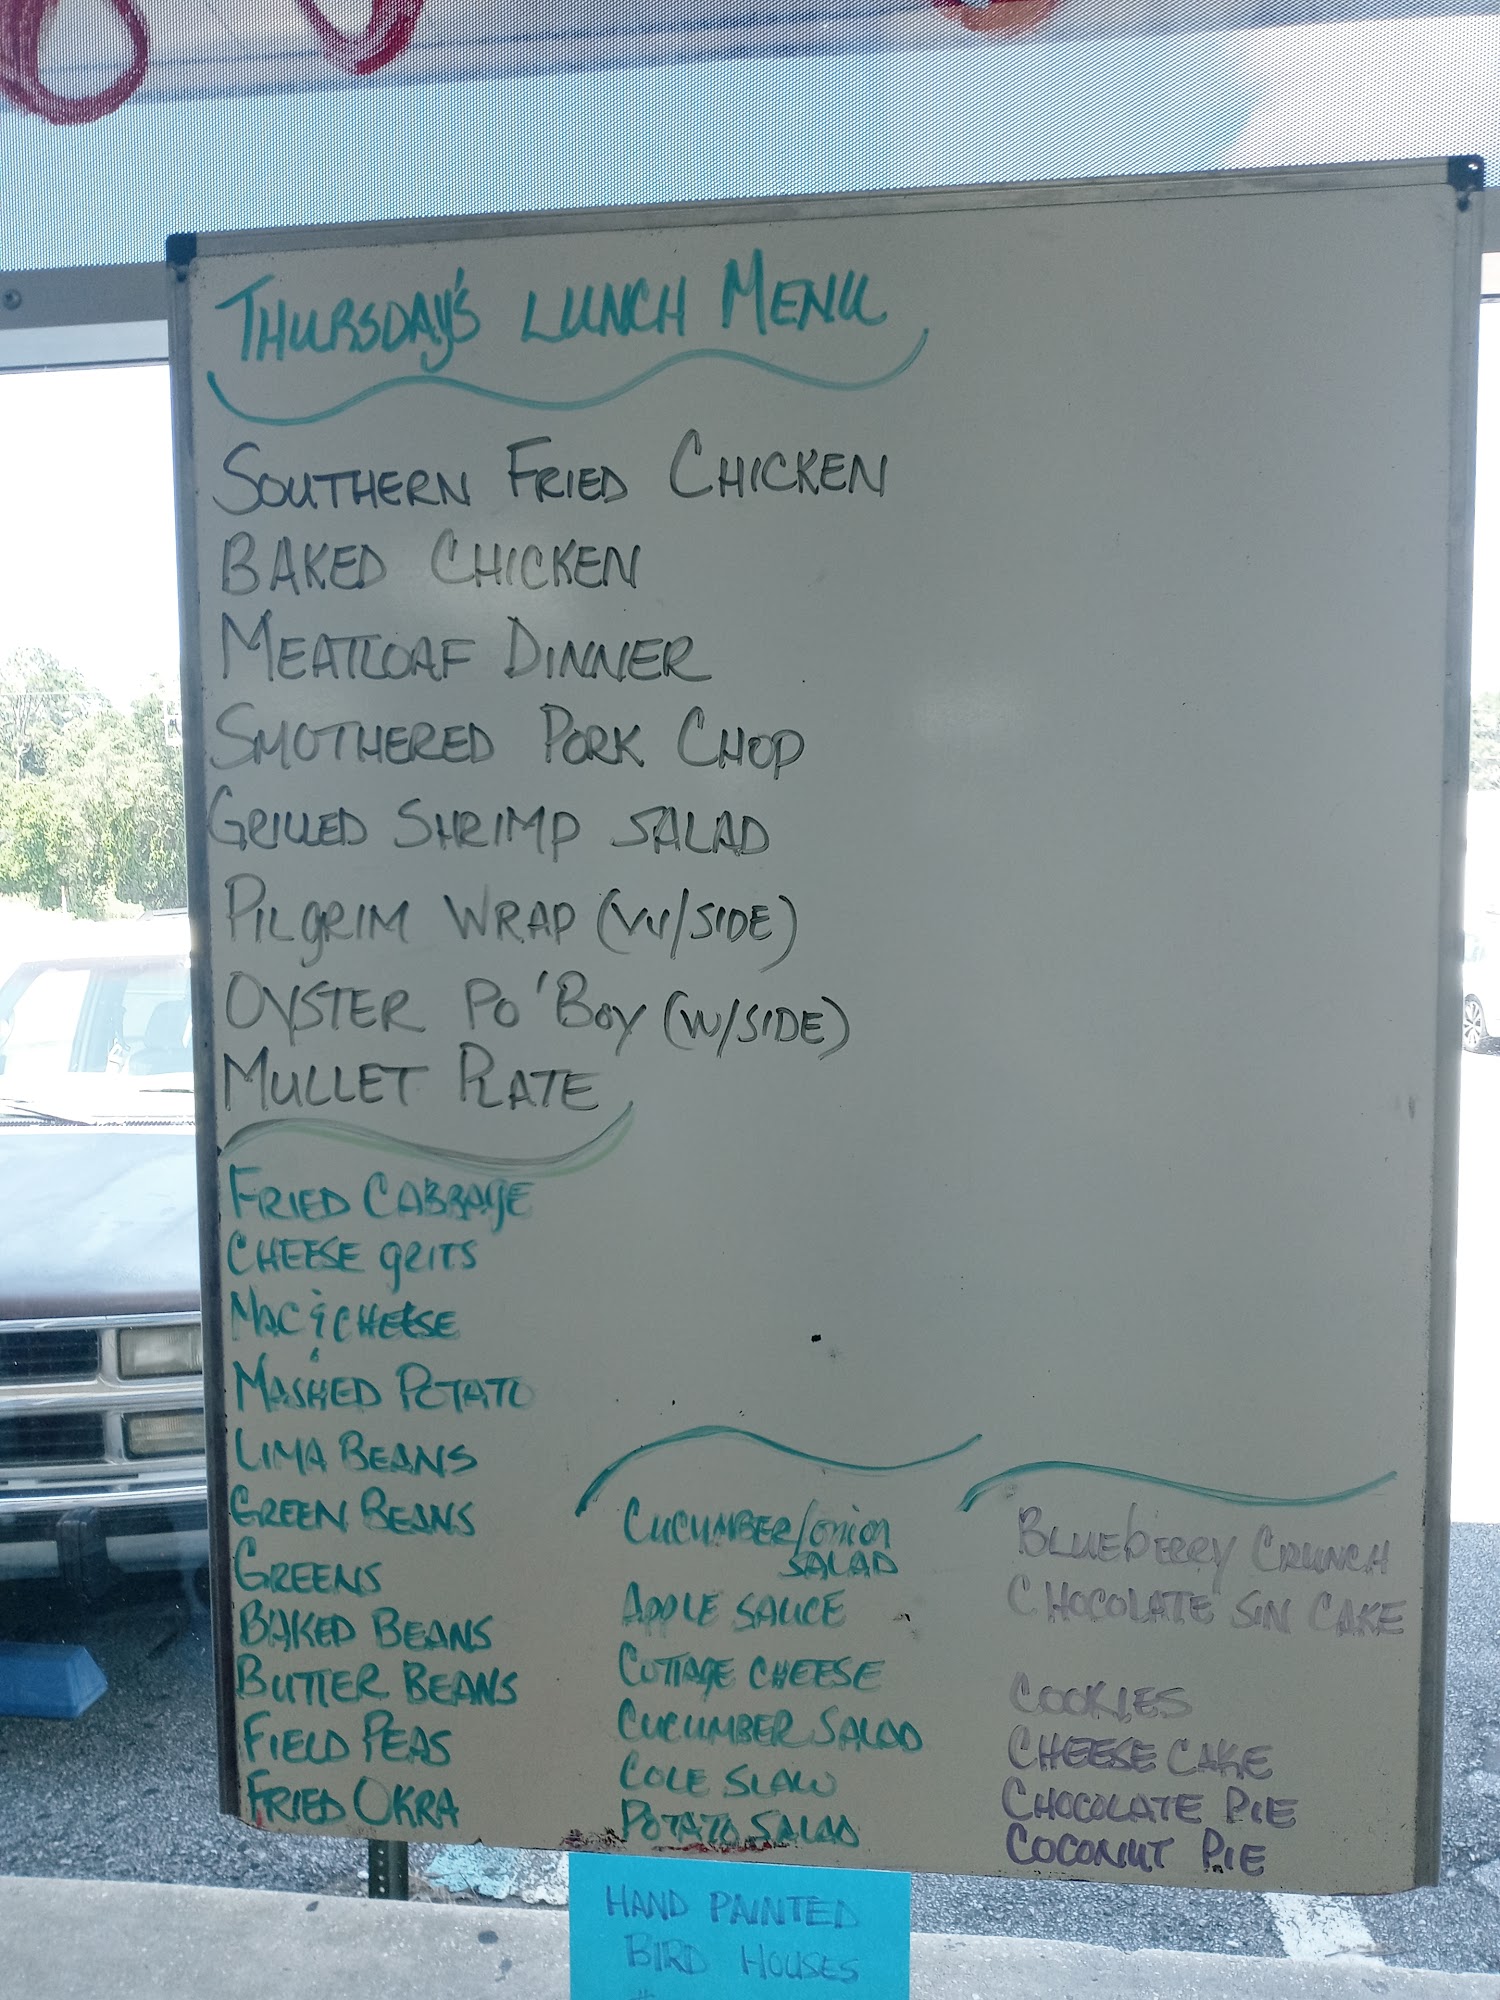 THURSDAY'S LUNCH MENU
SOUTHERN FRIED CHICKEN
BAKED CHICKEN
MEATLOAF DINNER
SMOTHERED PORK CHOP
GRILLED SHRIMP SALAD
PILGRIM WRAP (W/SIDE)
OYSTER PO'BOY (W/SIDE)
MULLET PLATE
FRIED CABBAGE
CHEESE GRITS
MAC & CHEESE
MASHED POTATO
LIMA BEANS
GREEN BEANS
GREENS
BAKED BEANS
BUTTER BEANS
FIELD PEAS
FRIED OKRA
CUCUMBER/onion
SALAD
APPLE SAUCE
COTTAGE CHEESE
CUCUMBER SALAD
COLE SLAW
POTATO SALAD
BLUEbERRY CRUNCH
CHOCOLATE SIN CAKE
COOKIES
CHEESE CAKE
CHOCOLATE PIE
COCONUT PIE
HAND PAINTED
BIRD HOUSES